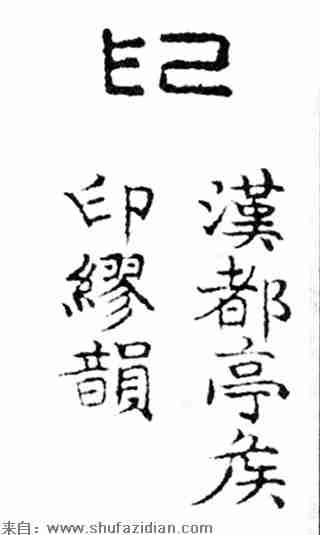 印
漢都亭矦
印繆韻
来自：www.shufazidian.com